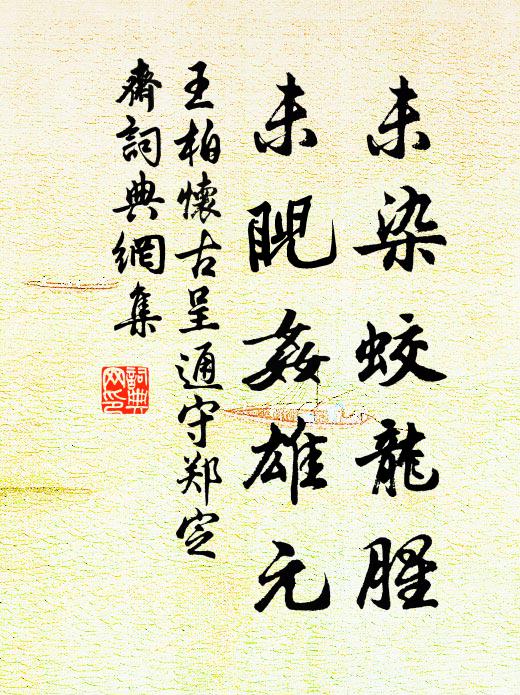 未染蛟龍腥
未睨姦雄元
王柏懷古呈通守郑定
齋詞典網集
詞典网印